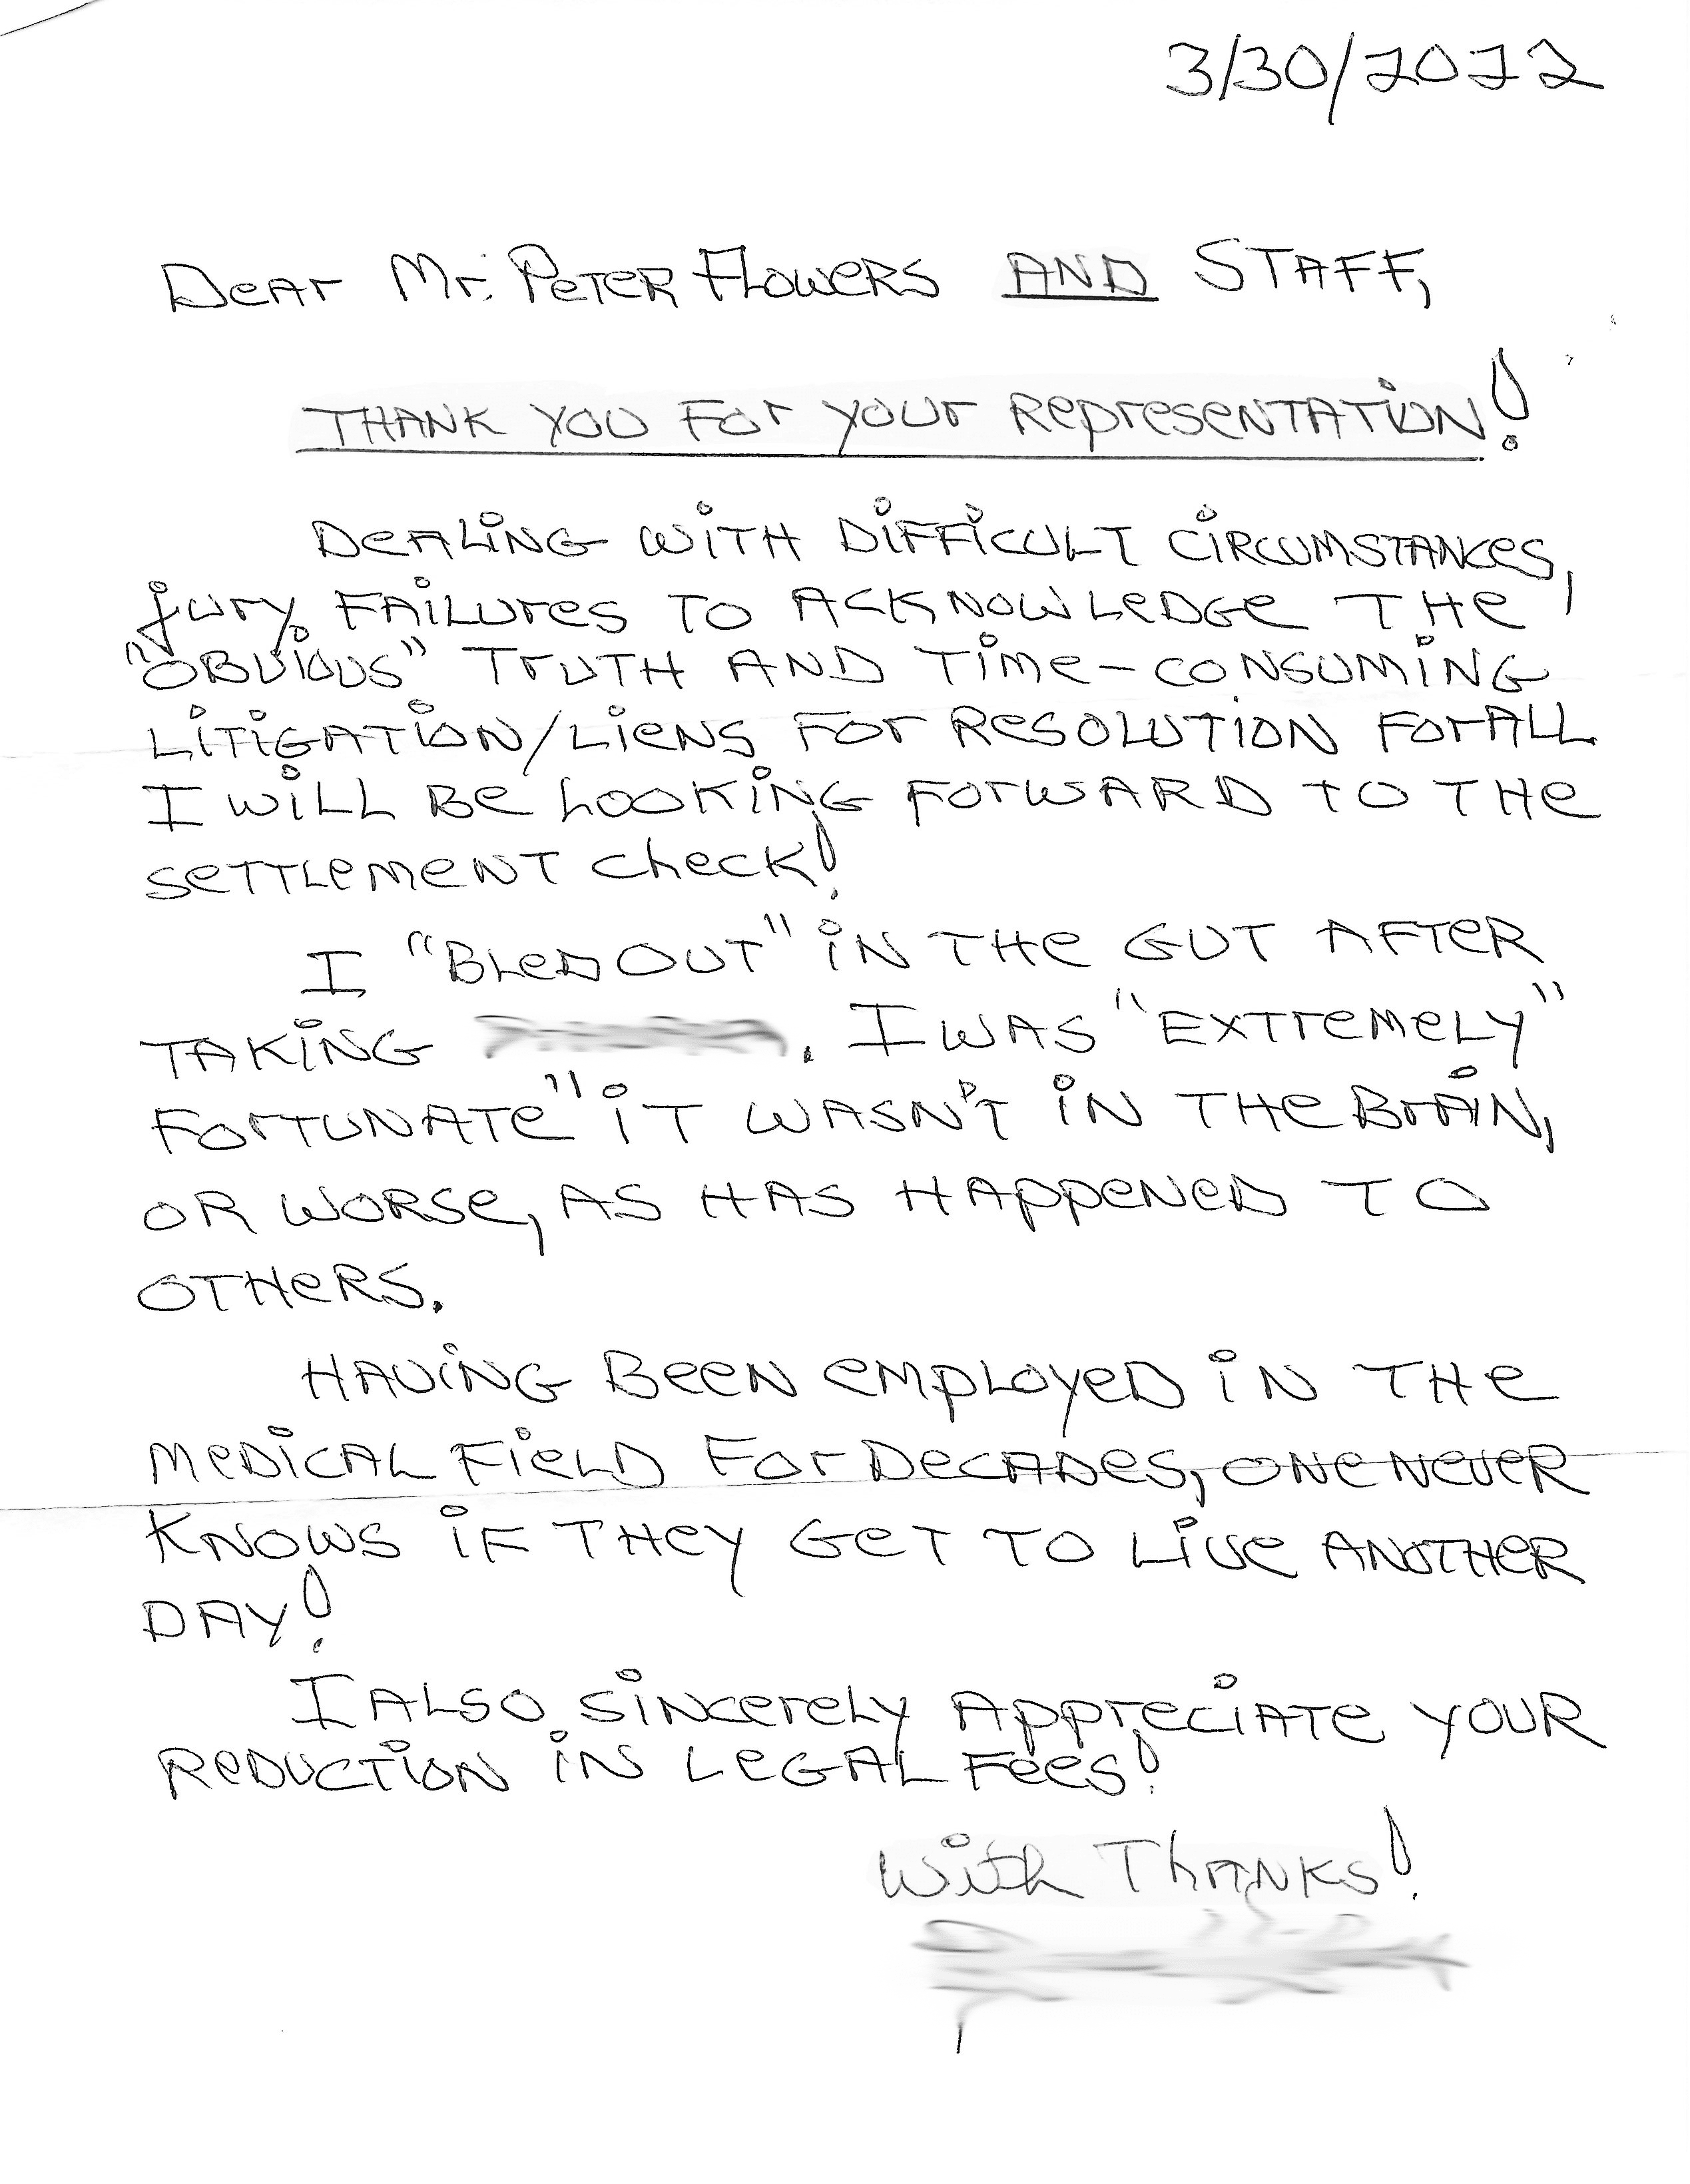 3/30/2022
Dear Mr. Peter Flowers AND STAFF,
THANK YOU FOR YOUR REPRESENTATION!
DEALING WITH DIFFICULT CIRCUMSTANCES,
jury FAILURES TO ACKNOWLEDGE THE
"OBVIOUS" TRUTH AND TIME-CONSUMING
LITIGATION/LIENS FOR RESOLUTION FOR ALL
I WILL BE LOOKING FORWARD TO THE
SETTLEMENT check!
I "BLED OUT" IN THE GUT AFTER
TAKING . I WAS "EXTREMELY"
FORTUNATE" IT WASN'T IN THE BRAIN,
OR WORSE, AS HAS HAPPENED TO
OTHERS.
HAVING BEEN EMPLOYED IN THE
MEDICAL FIELD FOR DECADES, ONE NEVER
KNOWS IF THEY GET TO LIVE ANOTHER
DAY!
I ALSO SINCERELY APPRECIATE YOUR
REDUCTION IN LEGAL FEES!
With Thanks!